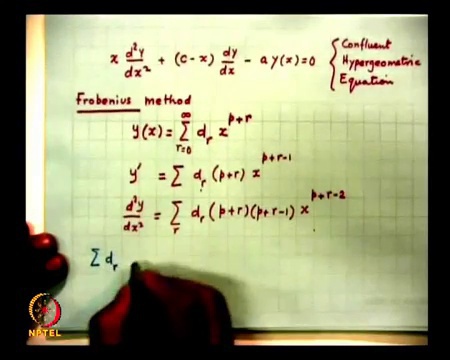 x d²y/dx² + (c-x) dy/dx - a y(x) = 0 { Confluent Hypergeometric Equation
Frobenius method
y(x) = Σ_{r=0}^{∞} d_r x^{p+r}
y' = Σ d_r (p+r) x^{p+r-1}
d²y/dx² = Σ_r d_r (p+r)(p+r-1) x^{p+r-2}
Σ d_r
NPTEL